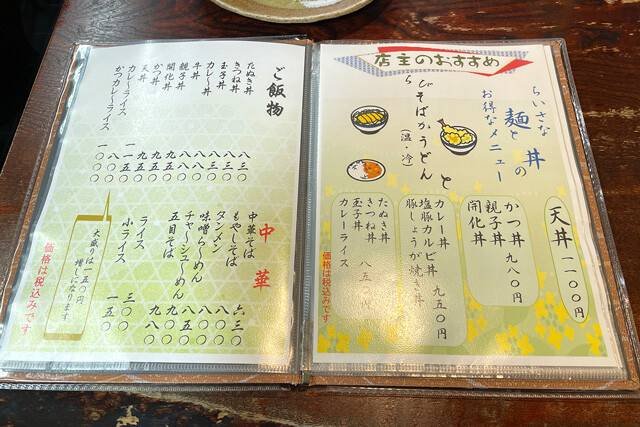 店主のおすすめ
ちいさな
麺と
の丼
お得なメニュー
ちびそばかうどん
(温・冷)
と
天丼 一一〇〇円
かつ丼
親子丼 九八〇円
開化丼
カレー丼
塩豚カルビ丼 九五〇円
豚しょうが焼き丼
たぬき丼
きつね丼 八五〇円
玉子丼
カレーライス
価格は税込みです
ご飯物
たぬき丼 八三〇
きつね丼 八三〇
玉子丼 八三〇
カレー丼 八八〇
牛丼 八八〇
親子丼 九五〇
開化丼 九五〇
かつ丼 九五〇
天丼 一一五〇
カレーライス 八〇〇
かつカレーライス
中華
中華そば 六三〇
もやしそば 八〇〇
タンメン 八〇〇
味噌らーめん 八〇〇
チャーシューめん 九〇〇
五目そば 九八〇
ライス 三〇〇
小ライス 一五〇
大盛りは一五〇円
増しになります
価格は税込みです